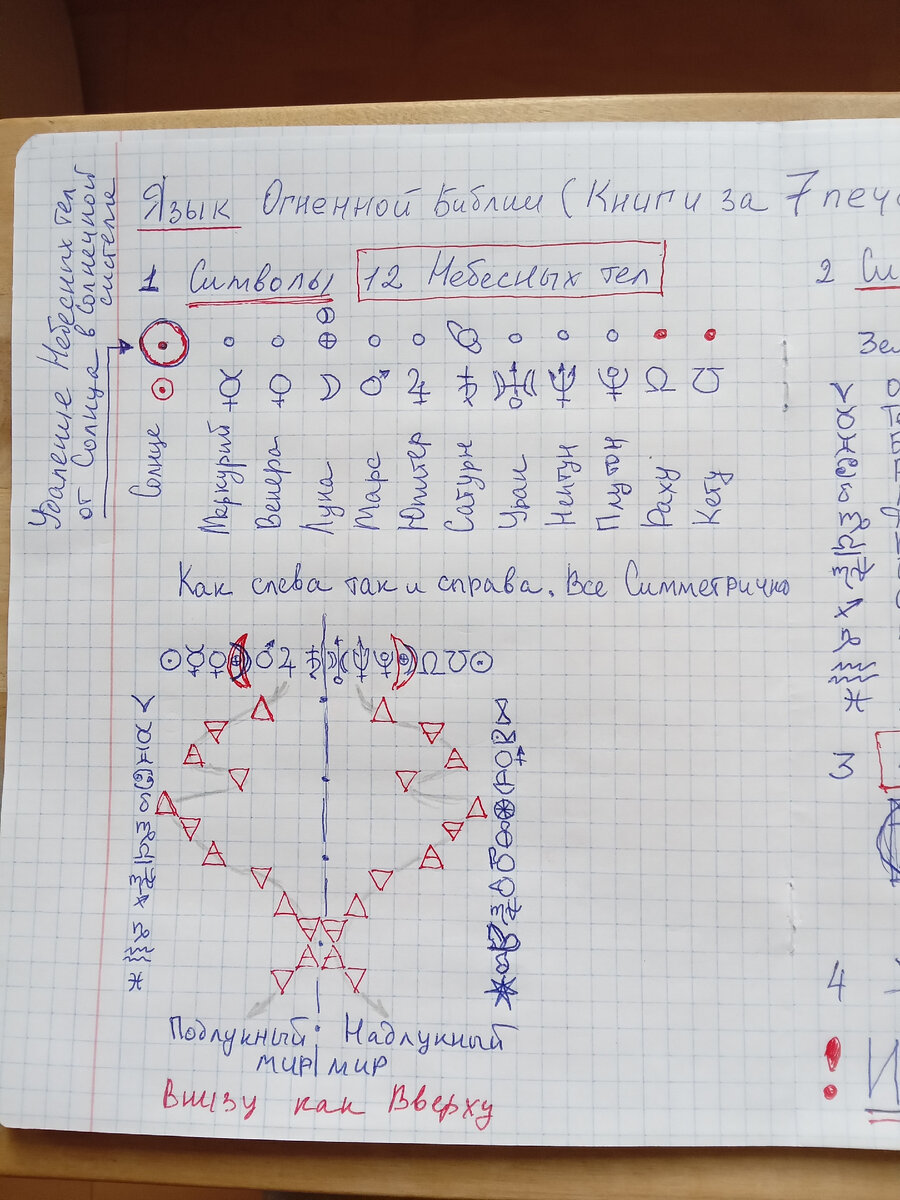 Удаление Небесных тел
от Солнца в Солнечной
системе
Язык Огненной Библии (Книги за 7 печ
1 Символы 12 Небесных тел
Солнце
Меркурий
Венера
Луна
Марс
Юпитер
Сатурн
Уран
Нептун
Плутон
Раху
Кету
Как слева так и справа. Все Симметрично
☉☿♀ ♂♃♄ ♆ ☊☋☉
Подлунный Надлунный
мир мир
Внизу как Вверху
2 Си
Зем
3
4